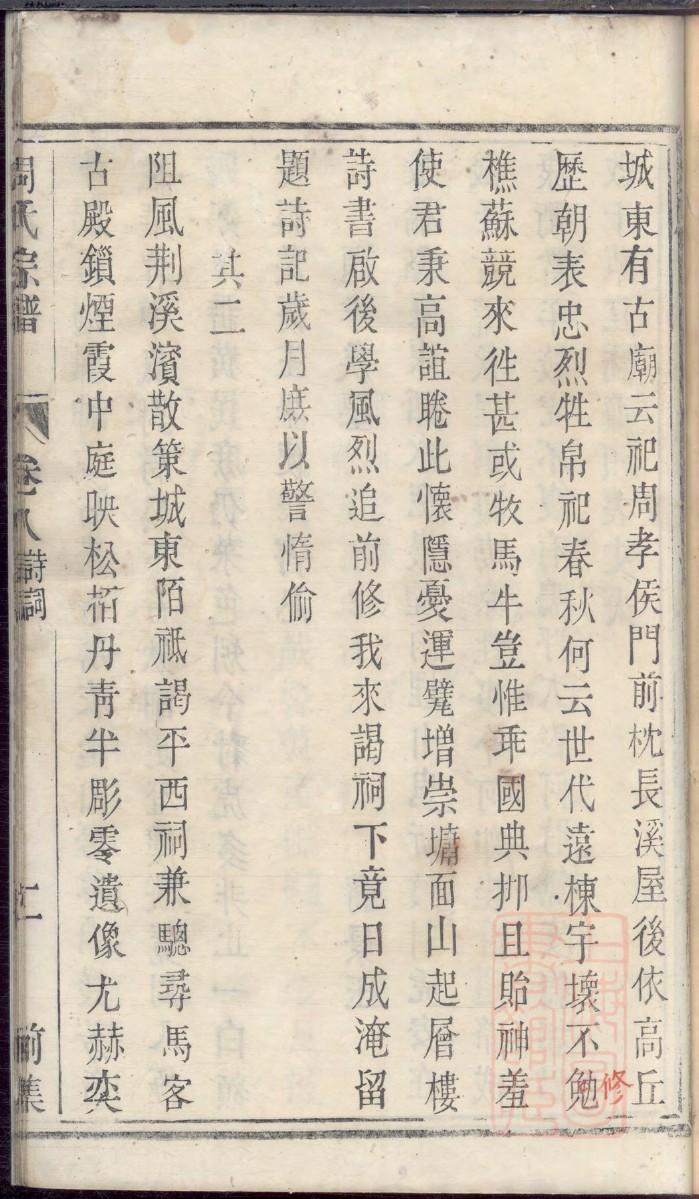 城東有古廟云祀周孝侯門前枕長溪屋後依高丘
歷朝表忠烈牲帛祀春秋何云世代遠棟宇壞不勉
修
樵蘇競來徃甚或牧馬牛豈惟乖國典抑且貽神羞
使君秉高誼睠此懷隱憂運甓增崇墉面山起層樓
詩書啟後學風烈追前修我來謁祠下竟日成淹留
題詩記歲月庶以警惰偷
其二
阻風荆溪濱散策城東陌祗謁平西祠兼驄尋馬客
古殿鎖煙霞中庭映松栢丹靑半彫零遺像尤赫奕
周氏宗譜 卷八 詩詞 前集